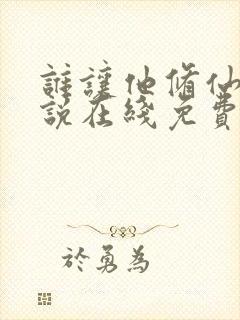 誰讓他脩仙
說在綫免費
於勇為